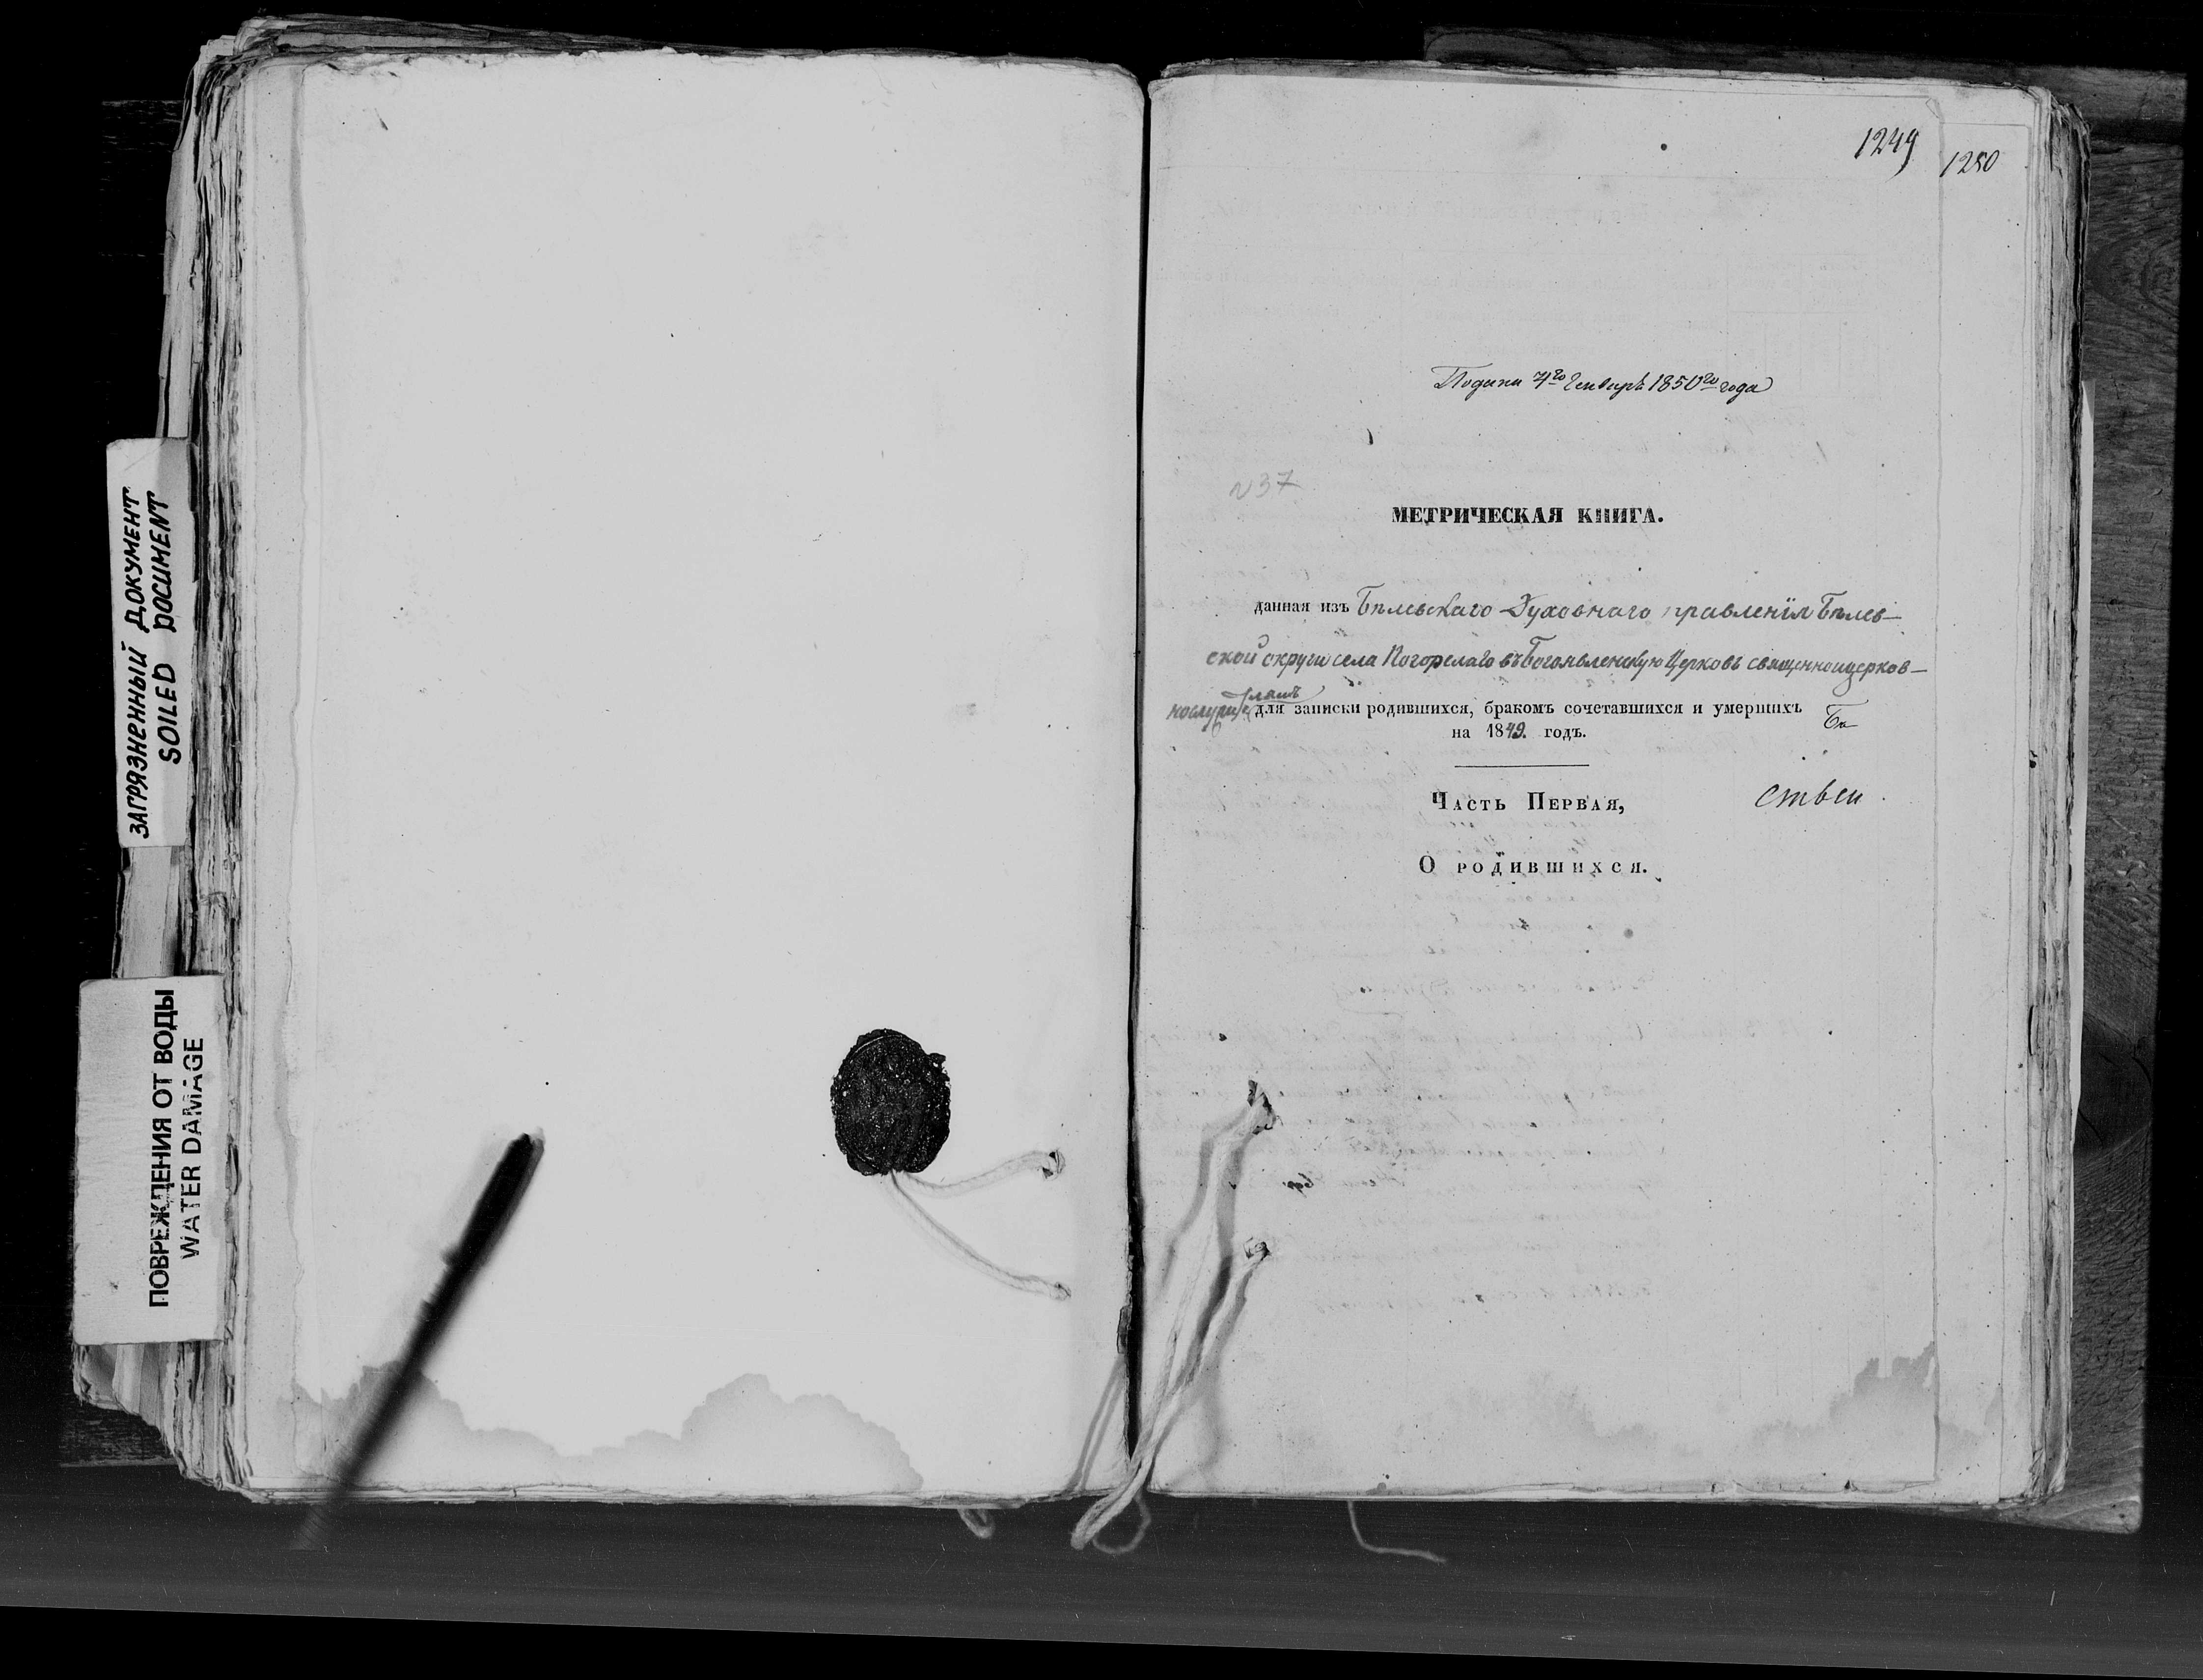 ЗАГРЯЗНЕННЫЙ ДОКУМЕНТ
SOILED DOCUMENT
ПОВРЕЖДЕНИЯ ОТ ВОДЫ
WATER DAMAGE
1249
1250
1850го года
N 37
МЕТРИЧЕСКАЯ КНИГА.
данная изъ Бѣлевскаго Духовнаго правленія Бѣлев-
ской округи села Погорелаго въ Богоявленскую Церковь священноицерков-
нослужителямъ для записки родившихся, бракомъ сочетавшихся и умершихъ
на 1849. годъ.
Часть Первая,
О родившихся.